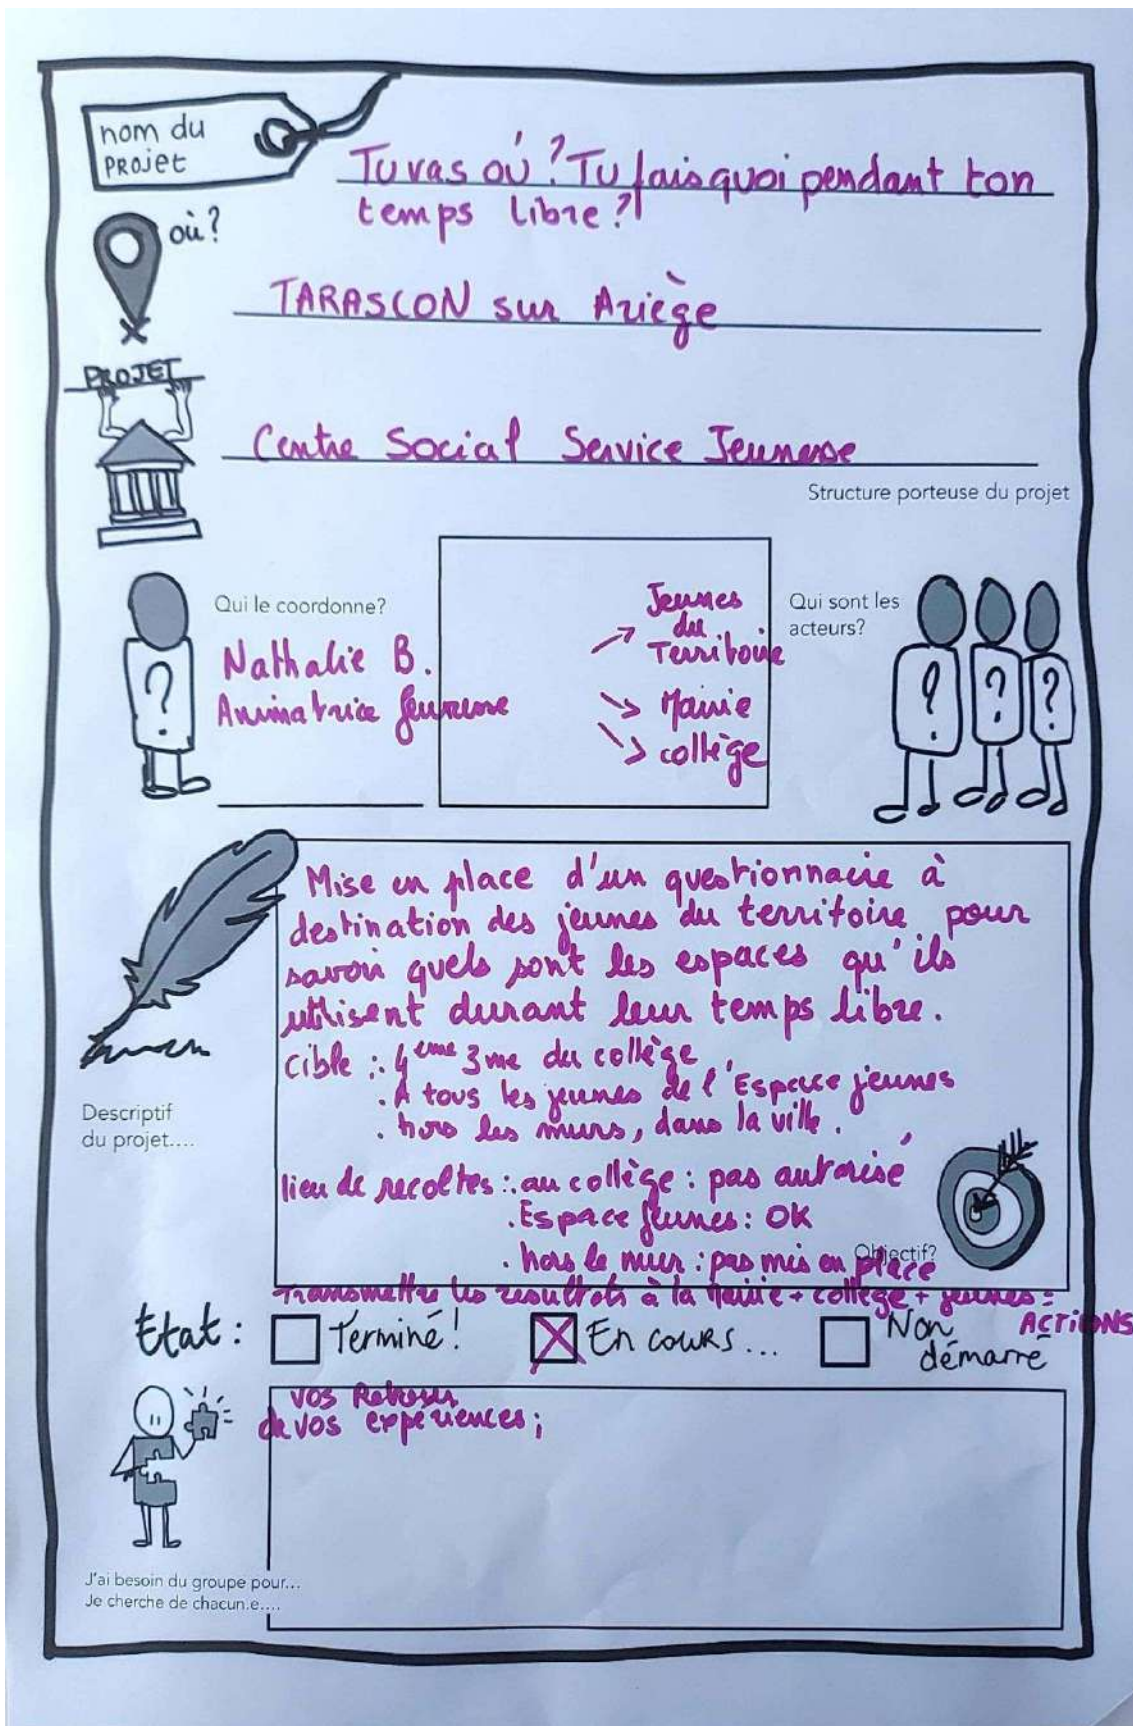 nom du
PROJET
Tu vas où? Tu fais quoi pendant ton
temps libre?
où?
TARASCON sur Ariège
PROJET
Centre Social Service Jeunesse
Structure porteuse du projet
Qui le coordonne?
Nathalie B.
Animatrice Jeunesse
Jeunes
du
Territoire
Mairie
collège
Qui sont les
acteurs?
Mise en place d'un questionnaire à
destination des jeunes du territoire pour
savoir quels sont les espaces qu'ils
utilisent durant leur temps libre.
Cible : . 4eme 3me du collège
. A tous les jeunes de l'Espace jeunes
. hors les murs, dans la ville.
Descriptif
du projet....
lieu de recoltes : . au collège : pas autorisé
. Espace Jeunes : OK
. hors le mur : pas mis en place
Objectif?
Transmettre les resultats à la Mairie + collège + jeunes =
ACTIONS
Etat :
Terminé!
En cours...
Non
démarré
vos Retours
de vos expériences ;
J'ai besoin du groupe pour...
Je cherche de chacun.e....